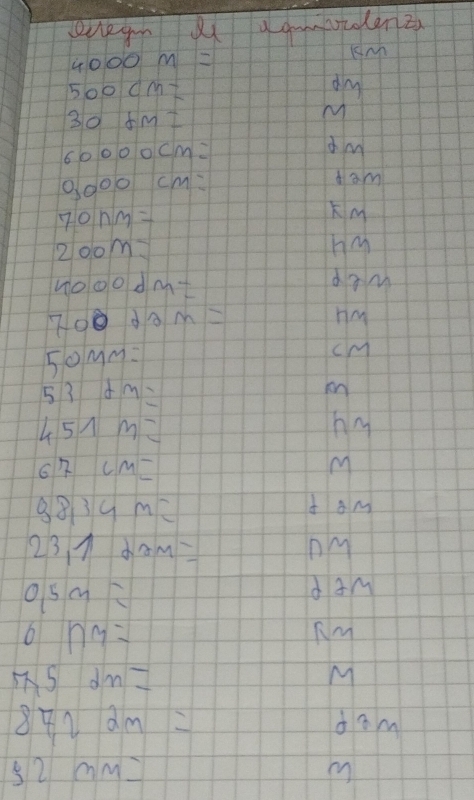 Esegui le equivalenze
4000 m = km
500 cm = dm
30 dm = m
60000 cm = dm
9000 cm = dam
70 hm = km
200 m = hm
4000 dm = dam
700 dam = hm
50 mm = cm
53 dm = m
451 m = hm
67 cm = m
98,34 m = dam
23,1 dam = hm
0,5 m = dam
6 hm = km
7,5 dm = m
87,2 dm = dam
92 mm = m